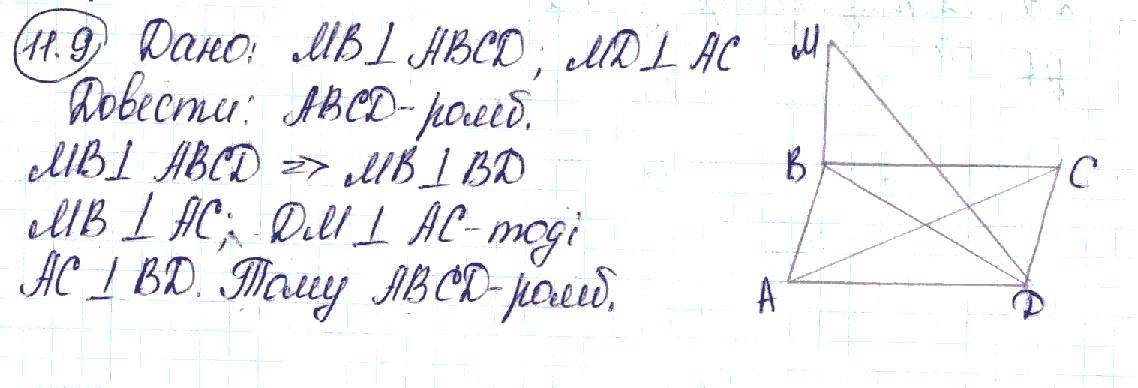 11.9 Дано: MB⊥ABCD; MD⊥AC
Довести: ABCD-ромб.
MB⊥ABCD => MB⊥BD
MB⊥AC; DM⊥AC-тоді
AC⊥BD. Тому ABCD-ромб.
M
B
C
A
D